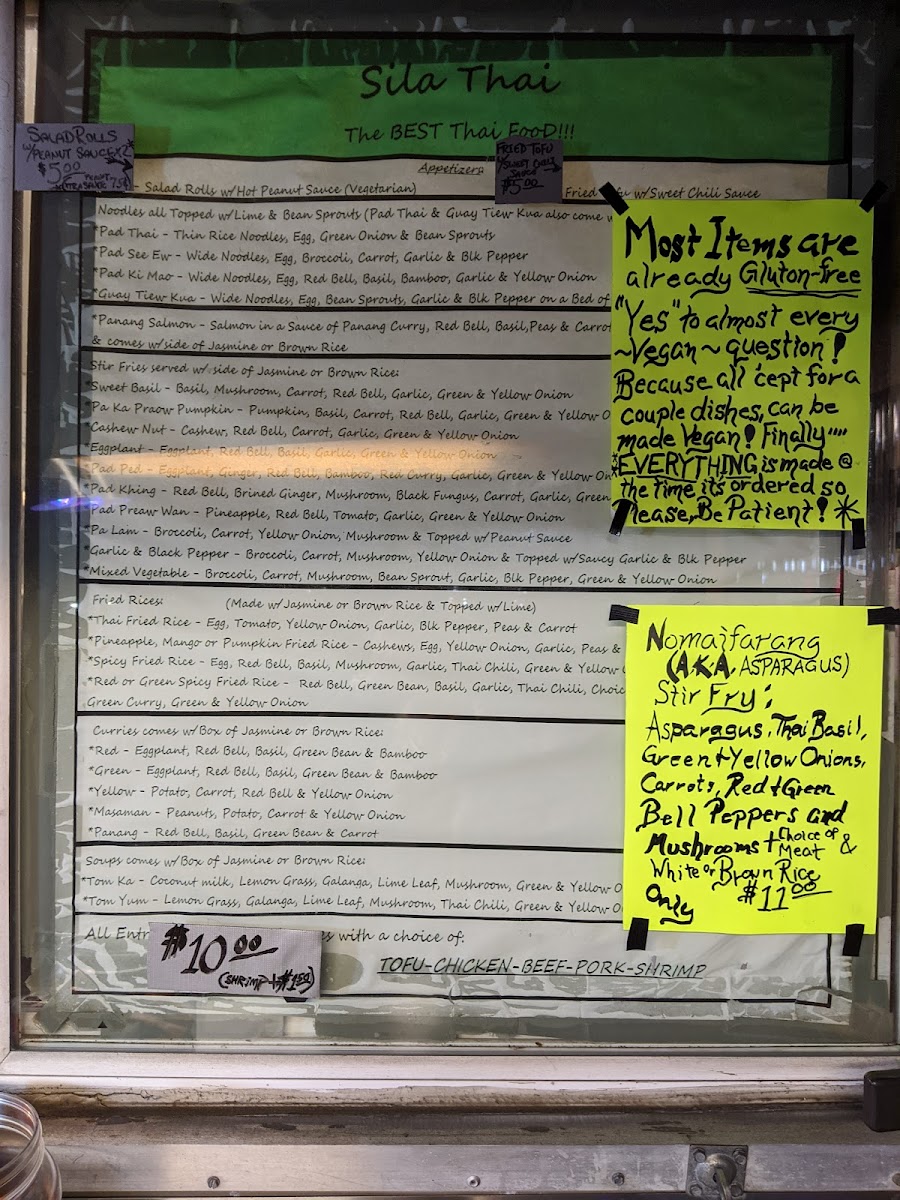 Sila Thai
The BEST Thai FooD!!!
SALAD ROLLS
W/PEANUT SAUCE x2
$5.00
FRIED TOFU
W/SWEET CHILI
SAUCE
$5.00
Appetizers
- Salad Rolls w/Hot Peanut Sauce (Vegetarian)
Fried Tofu w/Sweet Chili Sauce
Noodles all Topped w/Lime & Bean Sprouts (Pad Thai & Guay Tiew Kua also come w
*Pad Thai - Thin Rice Noodles, Egg, Green Onion & Bean Sprouts
*Pad See Ew - Wide Noodles, Egg, Broccoli, Carrot, Garlic & Blk Pepper
*Pad Ki Mao - Wide Noodles, Egg, Red Bell, Basil, Bamboo, Garlic & Yellow Onion
*Guay Tiew Kua - Wide Noodles, Egg, Bean Sprouts, Garlic & Blk Pepper on a Bed of
*Panang Salmon - Salmon in a Sauce of Panang Curry, Red Bell, Basil, Peas & Carrot
& comes w/side of Jasmine or Brown Rice
Stir Fries served w/side of Jasmine or Brown Rice:
*Sweet Basil - Basil, Mushroom, Carrot, Red Bell, Garlic, Green & Yellow Onion
*Pa Ka Praow Pumpkin - Pumpkin, Basil, Carrot, Red Bell, Garlic, Green & Yellow O
*Cashew Nut - Cashew, Red Bell, Carrot, Garlic, Green & Yellow Onion
*Eggplant - Eggplant, Red Bell, Basil, Garlic, Green & Yellow Onion
*Pad Ped - Eggplant, Ginger, Red Bell, Bamboo, Red Curry, Garlic, Green & Yellow On
*Pad Khing - Red Bell, Brined Ginger, Mushroom, Black Fungus, Carrot, Garlic, Green
*Pad Preaw Wan - Pineapple, Red Bell, Tomato, Garlic, Green & Yellow Onion
*Pa Lam - Broccoli, Carrot, Yellow Onion, Mushroom & Topped w/Peanut Sauce
*Garlic & Black Pepper - Broccoli, Carrot, Mushroom, Yellow Onion & Topped w/Saucy Garlic & Blk Pepper
*Mixed Vegetable - Broccoli, Carrot, Mushroom, Bean Sprout, Garlic, Blk Pepper, Green & Yellow Onion
Fried Rices: (Made w/Jasmine or Brown Rice & Topped w/Lime)
*Thai Fried Rice - Egg, Tomato, Yellow Onion, Garlic, Blk Pepper, Peas & Carrot
*Pineapple, Mango or Pumpkin Fried Rice - Cashews, Egg, Yellow Onion, Garlic, Peas &
*Spicy Fried Rice - Egg, Red Bell, Basil, Mushroom, Garlic, Thai Chili, Green & Yellow
*Red or Green Spicy Fried Rice - Red Bell, Green Bean, Basil, Garlic, Thai Chili, Choic
Green Curry, Green & Yellow Onion
Curries comes w/Box of Jasmine or Brown Rice:
*Red - Eggplant, Red Bell, Basil, Green Bean & Bamboo
*Green - Eggplant, Red Bell, Basil, Green Bean & Bamboo
*Yellow - Potato, Carrot, Red Bell & Yellow Onion
*Masaman - Peanuts, Potato, Carrot & Yellow Onion
*Panang - Red Bell, Basil, Green Bean & Carrot
Soups comes w/Box of Jasmine or Brown Rice:
*Tom Ka - Coconut milk, Lemon Grass, Galanga, Lime Leaf, Mushroom, Green & Yellow O
*Tom Yum - Lemon Grass, Galanga, Lime Leaf, Mushroom, Thai Chili, Green & Yellow O
All Entr
s with a choice of:
$10.00
(SHRIMP +$1.50)
TOFU-CHICKEN-BEEF-PORK-SHRIMP
Most Items are
already Gluton-free
"Yes" to almost every
~Vegan~ question!
Because all 'cept for a
couple dishes, can be
made Vegan! Finally""
*EVERYTHING is made @
the time it's ordered so
Please, Be Patient! *
Nomaifarang
(AKA, ASPARAGUS)
Stir Fry:
Asparagus, Thai Basil,
Green + Yellow Onions,
Carrots, Red + Green
Bell Peppers and
Mushrooms + Choice of Meat &
White or Brown Rice
Only $11.00